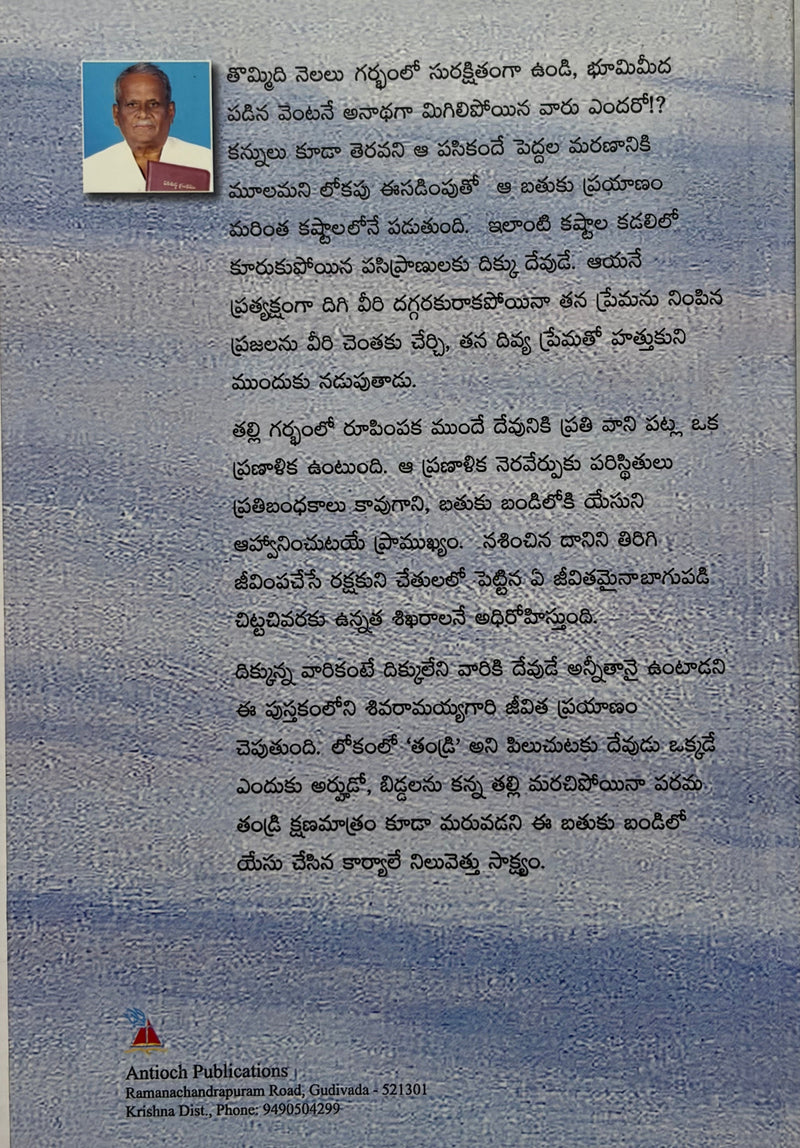 తొమ్మిది నెలలు గర్భంలో సురక్షితంగా ఉండి, భూమిమీద
పడిన వెంటనే అనాథగా మిగిలిపోయిన వారు ఎందరో!?
కన్నులు కూడా తెరవని ఆ పసికందే పెద్దల మరణానికి
మూలమని లోకపు ఈసడింపుతో ఆ బతుకు ప్రయాణం
మరింత కష్టాలలోనే పడుతుంది. ఇలాంటి కష్టాల కడలిలో
కూరుకుపోయిన పసిప్రాణులకు దిక్కు దేవుడే. ఆయనే
ప్రత్యక్షంగా దిగి వీరి దగ్గరకురాకపోయినా తన ప్రేమను నింపిన
ప్రజలను వీరి చెంతకు చేర్చి, తన దివ్య ప్రేమతో హత్తుకుని
ముందుకు నడుపుతాడు.
తల్లి గర్భంలో రూపింపక ముందే దేవునికి ప్రతి వాని పట్ల ఒక
ప్రణాళిక ఉంటుంది. ఆ ప్రణాళిక నెరవేర్పుకు పరిస్థితులు
ప్రతిబంధకాలు కావుగాని, బతుకు బండిలోకి యేసుని
ఆహ్వానించుటయే ప్రాముఖ్యం. నశించిన దానిని తిరిగి
జీవింపచేసే రక్షకుని చేతులలో పెట్టిన ఏ జీవితమైనాబాగుపడి
చిట్టచివరకు ఉన్నత శిఖరాలనే అధిరోహిస్తుంది.
దిక్కున్న వారికంటే దిక్కులేని వారికి దేవుడే అన్నీతానై ఉంటాడని
ఈ పుస్తకంలోని శివరామయ్యగారి జీవిత ప్రయాణం
చెపుతుంది. లోకంలో ‘తండ్రి’ అని పిలుచుటకు దేవుడు ఒక్కడే
ఎందుకు అర్హుడో, బిడ్డలను కన్న తల్లి మరచిపోయినా పరమ
తండ్రి క్షణమాత్రం కూడా మరువడని ఈ బతుకు బండిలో
యేసు చేసిన కార్యాలే నిలువెత్తు సాక్ష్యం.
Antioch Publications
Ramanachandrapuram Road, Gudivada - 521301
Krishna Dist., Phone: 9490504299